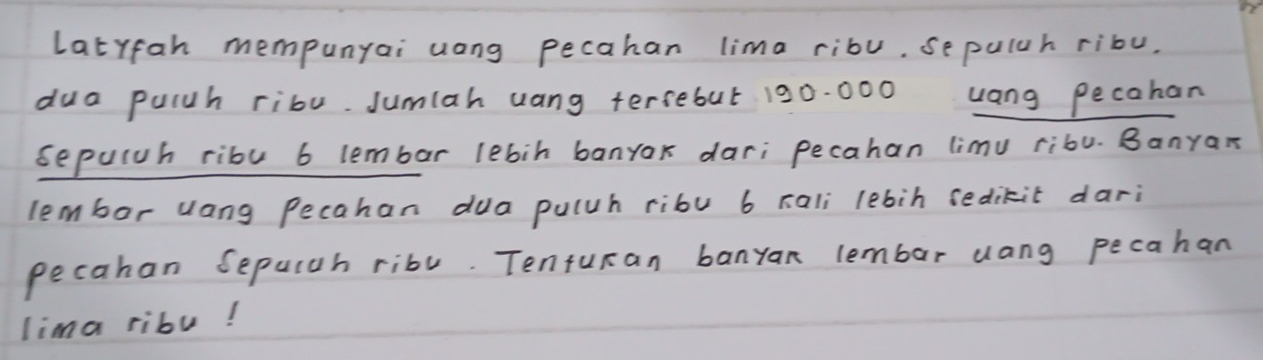 Latyfah mempunyai uang pecahan lima ribu. sepuluh ribu.
dua puluh ribu. Jumlah uang tersebut 190.000 uang pecahan
sepuluh ribu 6 lembar lebih banyak dari pecahan limu ribu. Banyak
lembar uang pecahan dua puluh ribu 6 kali lebih sedikit dari
pecahan sepuluh ribu. Tentukan banyak lembar uang pecahan
lima ribu!